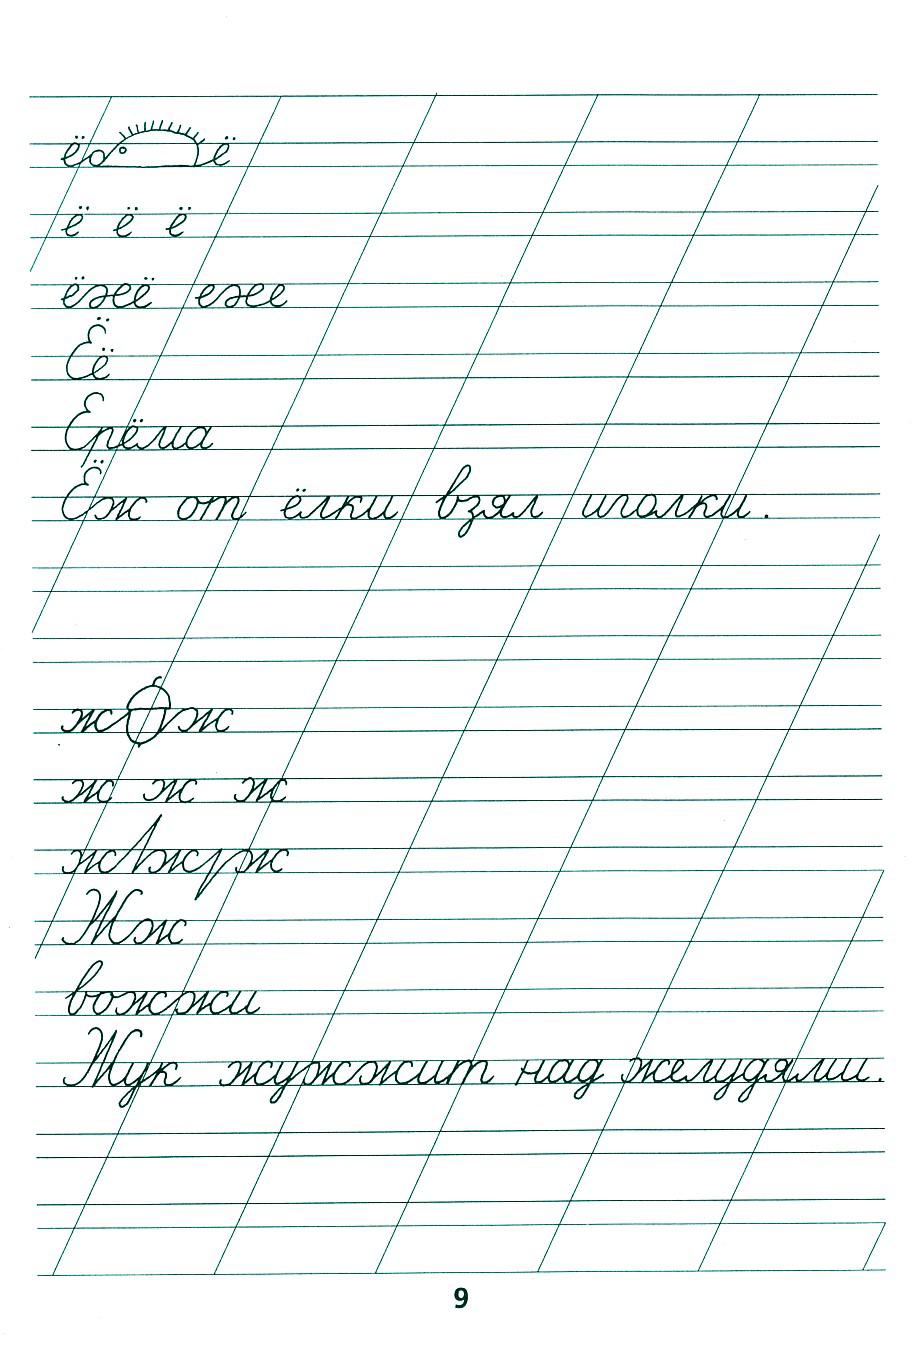 ё ё
ё ё ё
ёжё еже
Ёё
Ерёма
Ёж от ёлки взял иголки.
ж ж
ж ж ж
жжж
Жж
вожжи
Жук жужжит над желудями.
9